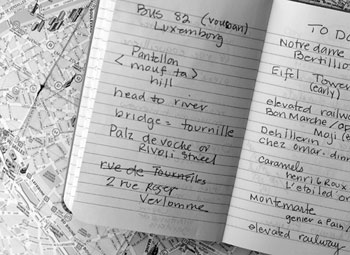 Bus 82 (vauban)
Luxemborg
Pantellon
< mouf ta >
hill
head to river
bridge = tournille
Palz de voche or
Rivoli street
rue de Tournelles
2 rue Roger
Verlomme
TO DO
Notre dame
Bertillio
Eifel Tower
(early)
elevated railway
Bon Marche
Moji
Dehillerin
chez omar. dinn
caramels
henri le Roux
L'etoiled or
Montemarte
genier a Pain
elevated railway